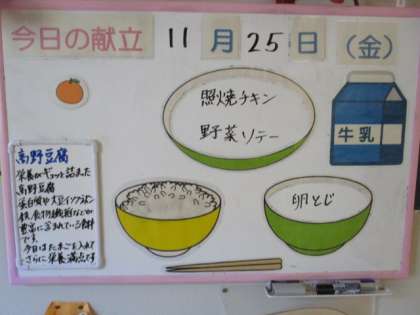 今日の献立 11月25日(金)
照焼チキン
野菜ソテー
牛乳
卵とじ
高野豆腐
栄養がギュッと詰まった
高野豆腐
蛋白質や大豆イソフラボン
鉄、食物繊維などが
豊富に含まれている食材
です。
今日はたまごを入れて
さらに栄養満点です